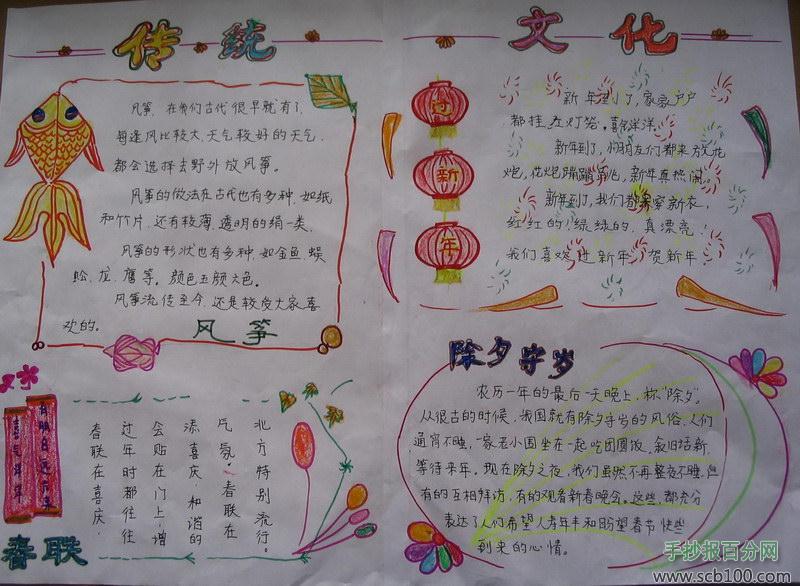 传统
文化
风筝,在我们古代很早就有了,
每逢风比较大,天气较好的天气,
都会选择去野外放风筝。
风筝的做法在古代也有多种,如纸
和竹片,还有较薄,透明的绢一类。
风筝的形状也有多种,如金鱼.蜈
蚣,龙,鹰等。颜色五颜六色。
风筝流传至今,还是较受大家喜
欢的。
风筝
新
年
新年到了,家家户户
都挂灯笼。喜气洋洋。
新年到了,小朋友们都来放花
炮,花炮蹦蹦飞,新年真热闹。
新年到了,我们都穿新衣,
红红的!绿绿的,真漂亮!
我们喜欢过新年,贺新年
春联在喜庆.
过年时都往往
会贴在门上,增
添喜庆.和谐的
气氛,春联在
北方特别流行。
春联
除夕守岁
农历一年的最后一天晚上,称"除夕",
从很古的时候,我国就有除夕守岁的风俗,人们
通宵不睡,一家老小围坐在一起吃团圆饭,叙旧话新,
等待来年。现在除夕之夜,我们虽然不再整夜不睡,但
有的互相拜访,有的观看新春晚会。这些,都充分
表达了人们希望人寿年丰和盼望春节快些
到来的心情。
手抄报百分网
www.scb100.com